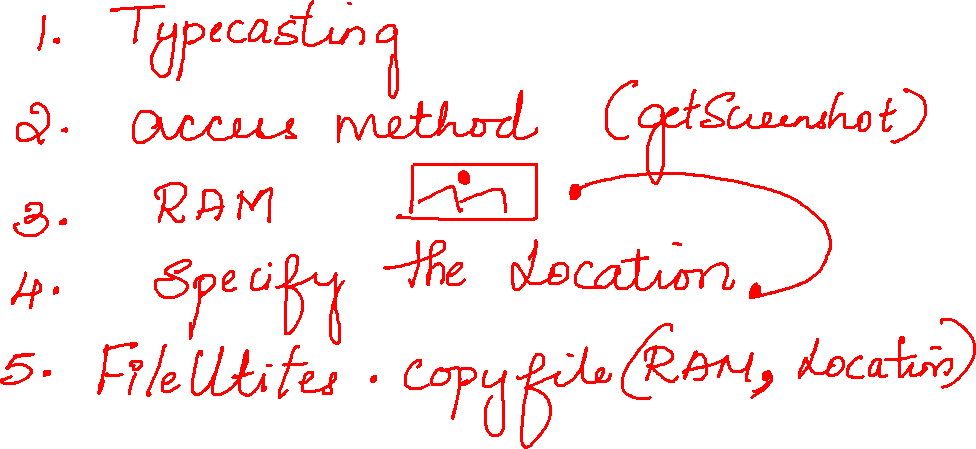 1. Typecasting
2. access method (getScreenshot)
3. RAM
4. Specify the Location.
5. FileUtites . copyfile (RAM, Location)